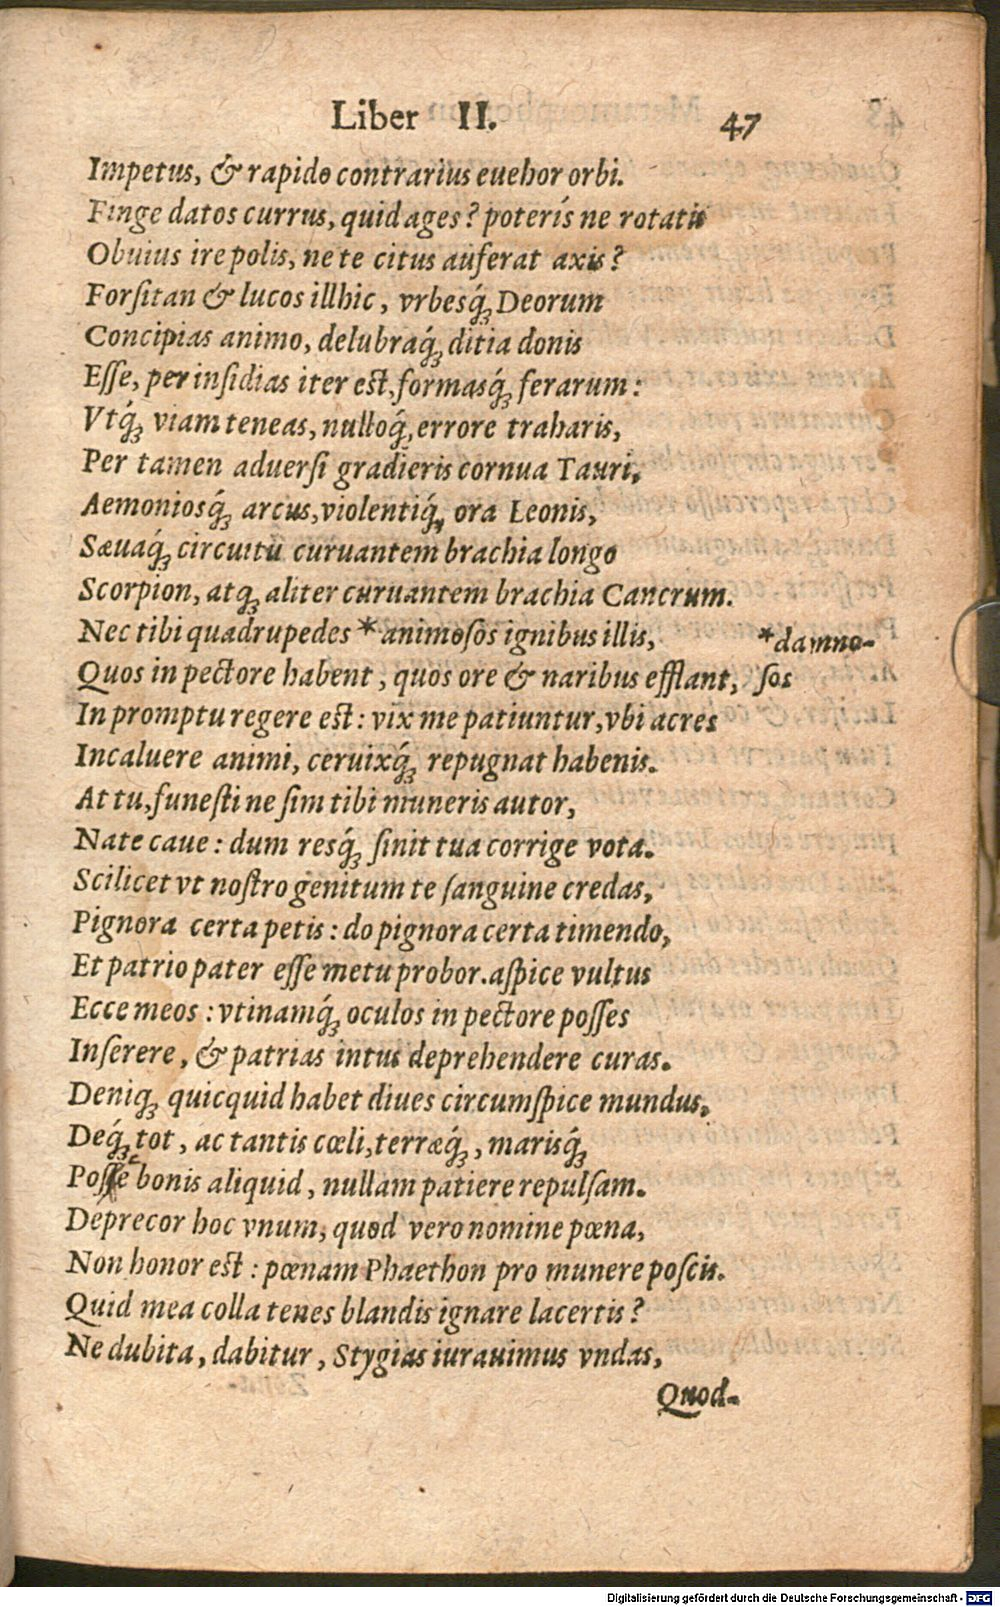 Liber II. 47
Impetus, & rapido contrarius euehor orbi.
Finge datos currus, quid ages? poterís ne rotatis
Obuius ire polis, ne te citus auferat axis?
Forſitan & lucos illhic, vrbesq́ꝫ Deorum
Concipias animo, delubraq́ꝫ ditia donis
Eſſe, per inſidias iter est, formasq́ꝫ ferarum:
Vtq́ꝫ viam teneas, nulloq́ꝫ errore traharis,
Per tamen aduerſi gradieris cornua Tauri,
Aemoniosq́ꝫ arcus, violentiq́ꝫ ora Leonis,
Sæuaq́ꝫ circuitu curuantem brachia longo
Scorpion, atqꝫ aliter curuantem brachia Cancrum.
Nec tibi quadrupedes * animosos ignibus illis,
*damno-
Quos in pectore habent, quos ore & naribus efflant,
ſos
In promptu regere est: vix me patiuntur, vbi acres
Incaluere animi, ceruixq́ꝫ repugnat habenis.
At tu, funeſti ne ſim tibi muneris autor,
Nate caue: dum resq́ꝫ ſinit tua corrige vota.
Scilicet vt noſtro genitum te ſanguine credas,
Pignora certa petis: do pignora certa timendo,
Et patrio pater eſſe metu probor. aſpice vultus
Ecce meos: vtinamq́ꝫ oculos in pectore poſſes
Inſerere, & patrias intus deprehendere curas.
Deniqꝫ quicquid habet diues circumſpice mundus,
Deq́ꝫ tot, ac tantis cœli, terræq́ꝫ, marisq́ꝫ
Poſſe bonis aliquid, nullam patiere repulſam.
Deprecor hoc vnum, quod vero nomine pœna,
Non honor est: pœnam Phaethon pro munere poſcis.
Quid mea colla tenes blandis ignare lacertis?
Ne dubita, dabitur, Stygias iurauimus vndas,
Quod-
Digitalisierung gefördert durch die Deutsche Forschungsgemeinschaft - DFG